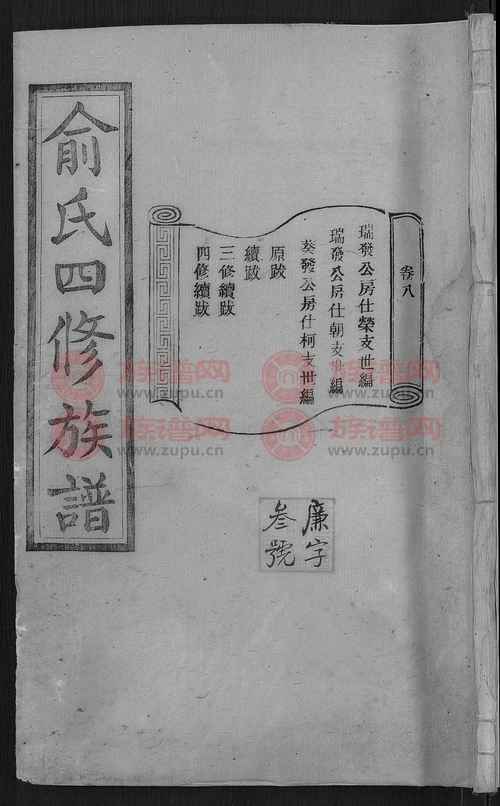 俞氏四修族譜
卷八
瑞發公房仕榮支世編
瑞發公房仕朝支世編
葵發公房仕柯支世編
原跋
續跋
三修續跋
四修續跋
廉字
叁號
族谱网
www.zupu.cn
族谱网
www.zupu.cn
族谱网
www.zupu.cn